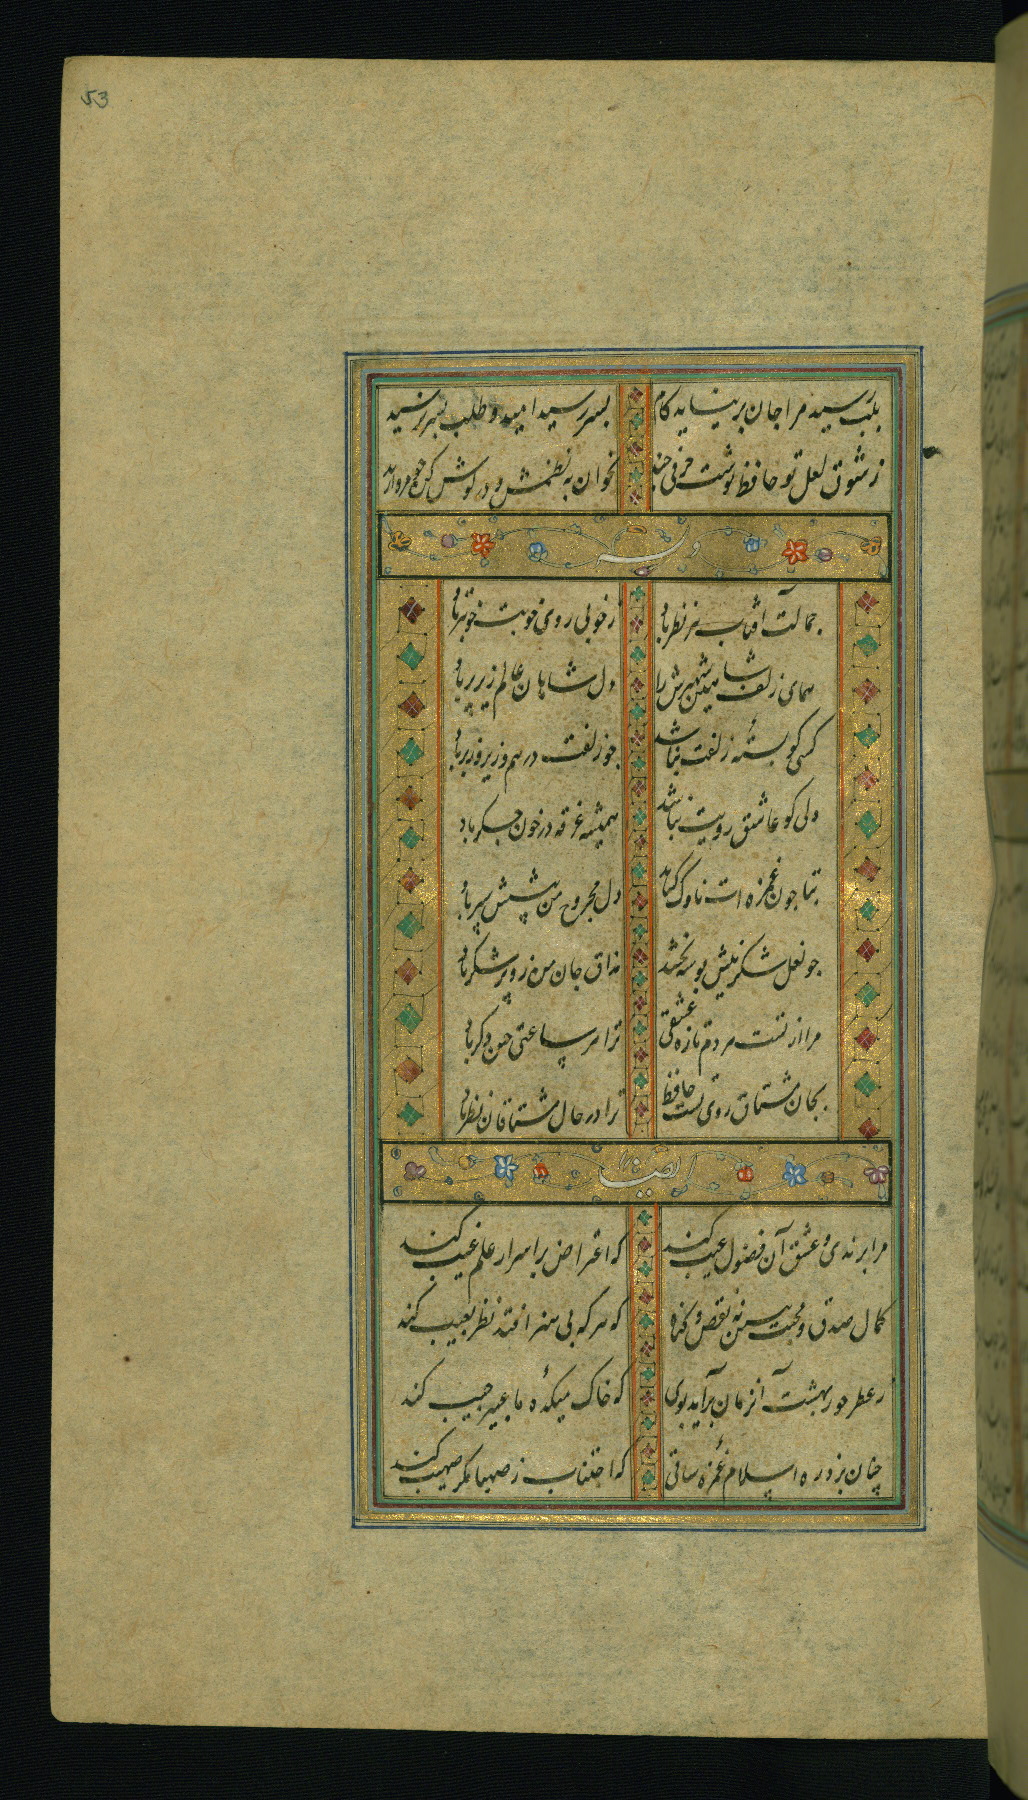 53
بلب رسید مرا جان برنیاید کام بسر رسید امید و طلب بسر نرسید
ز شوق لعل تو حافظ نوشت حرفی چند بخوان به نظمش و در گوش کن چو مروارید
وله
جمالت آفتاب هر نظر باد ز خوبی روی خوبت خوبتر باد
همای زلف شاهین شهپرش را دل شاهان عالم زیر پر باد
کسی کو بستهٔ زلفت نباشد چو زلفت درهم و زیر و زبر باد
دلی کو عاشق رویت نباشد همیشه غرقه در خون جگر باد
بتا چون غمزه ات ناوک گشاید دل مجروح من پیشش سپر باد
چو لعل شکرینش بوسه بخشد مذاق جان من زو پر شکر باد
مرا از تست هر دم تازه عشقی ترا هر ساعتی حسن دگر باد
بجان مشتاق روی تست حافظ ترا در حال مشتاقان نظر باد
ایضا
مرا برندی و عشق آن فضول عیب کند که اعتراض بر اسرار علم غیب کند
کمال صدق و محبت ببین نه نقص و گناه که هر که بی هنر افتد نظر بعیب کند
ز عطر حور بهشت آن زمان برآید بوی که خاک میکدهٔ ما عبیر جیب کند
چنان بزد ره اسلام غمزهٔ ساقی که اجتناب ز صهبا مگر صهیب کند